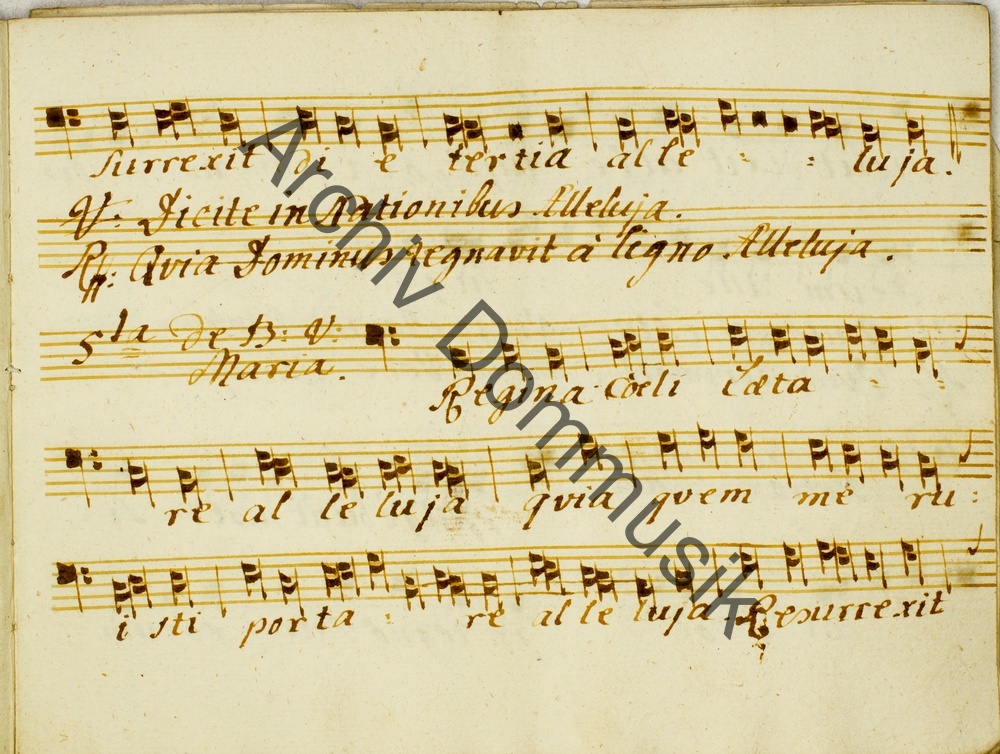 surrexit di e tertia alle - : luja.
V: Dicite in Nationibus Alleluja.
R: Qvia Dominus regnavit à ligno. Alleluja.
5ta de B: V: Maria.
Regina Cœli Læta - : - :
re al le luja qvia qvem me ru :
i sti porta : re al le luja. Resurrexit
Archiv Dommusik